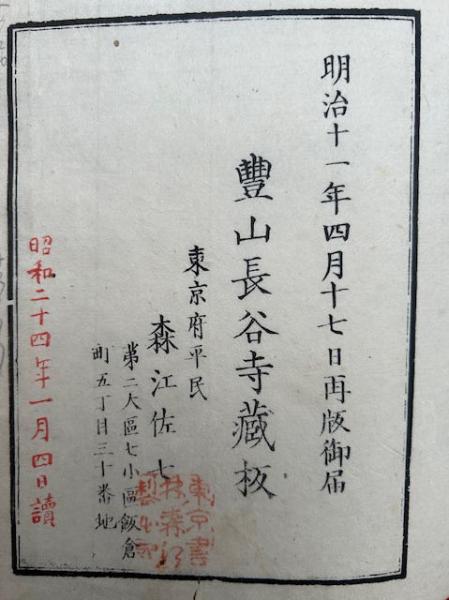 明治十一年四月十七日再版御届
豐山長谷寺藏板
東京府平民
森江佐七
第二大區七小區飯倉
町五丁目三十番地
東京書
林森江
昭和二十四年一月四日讀